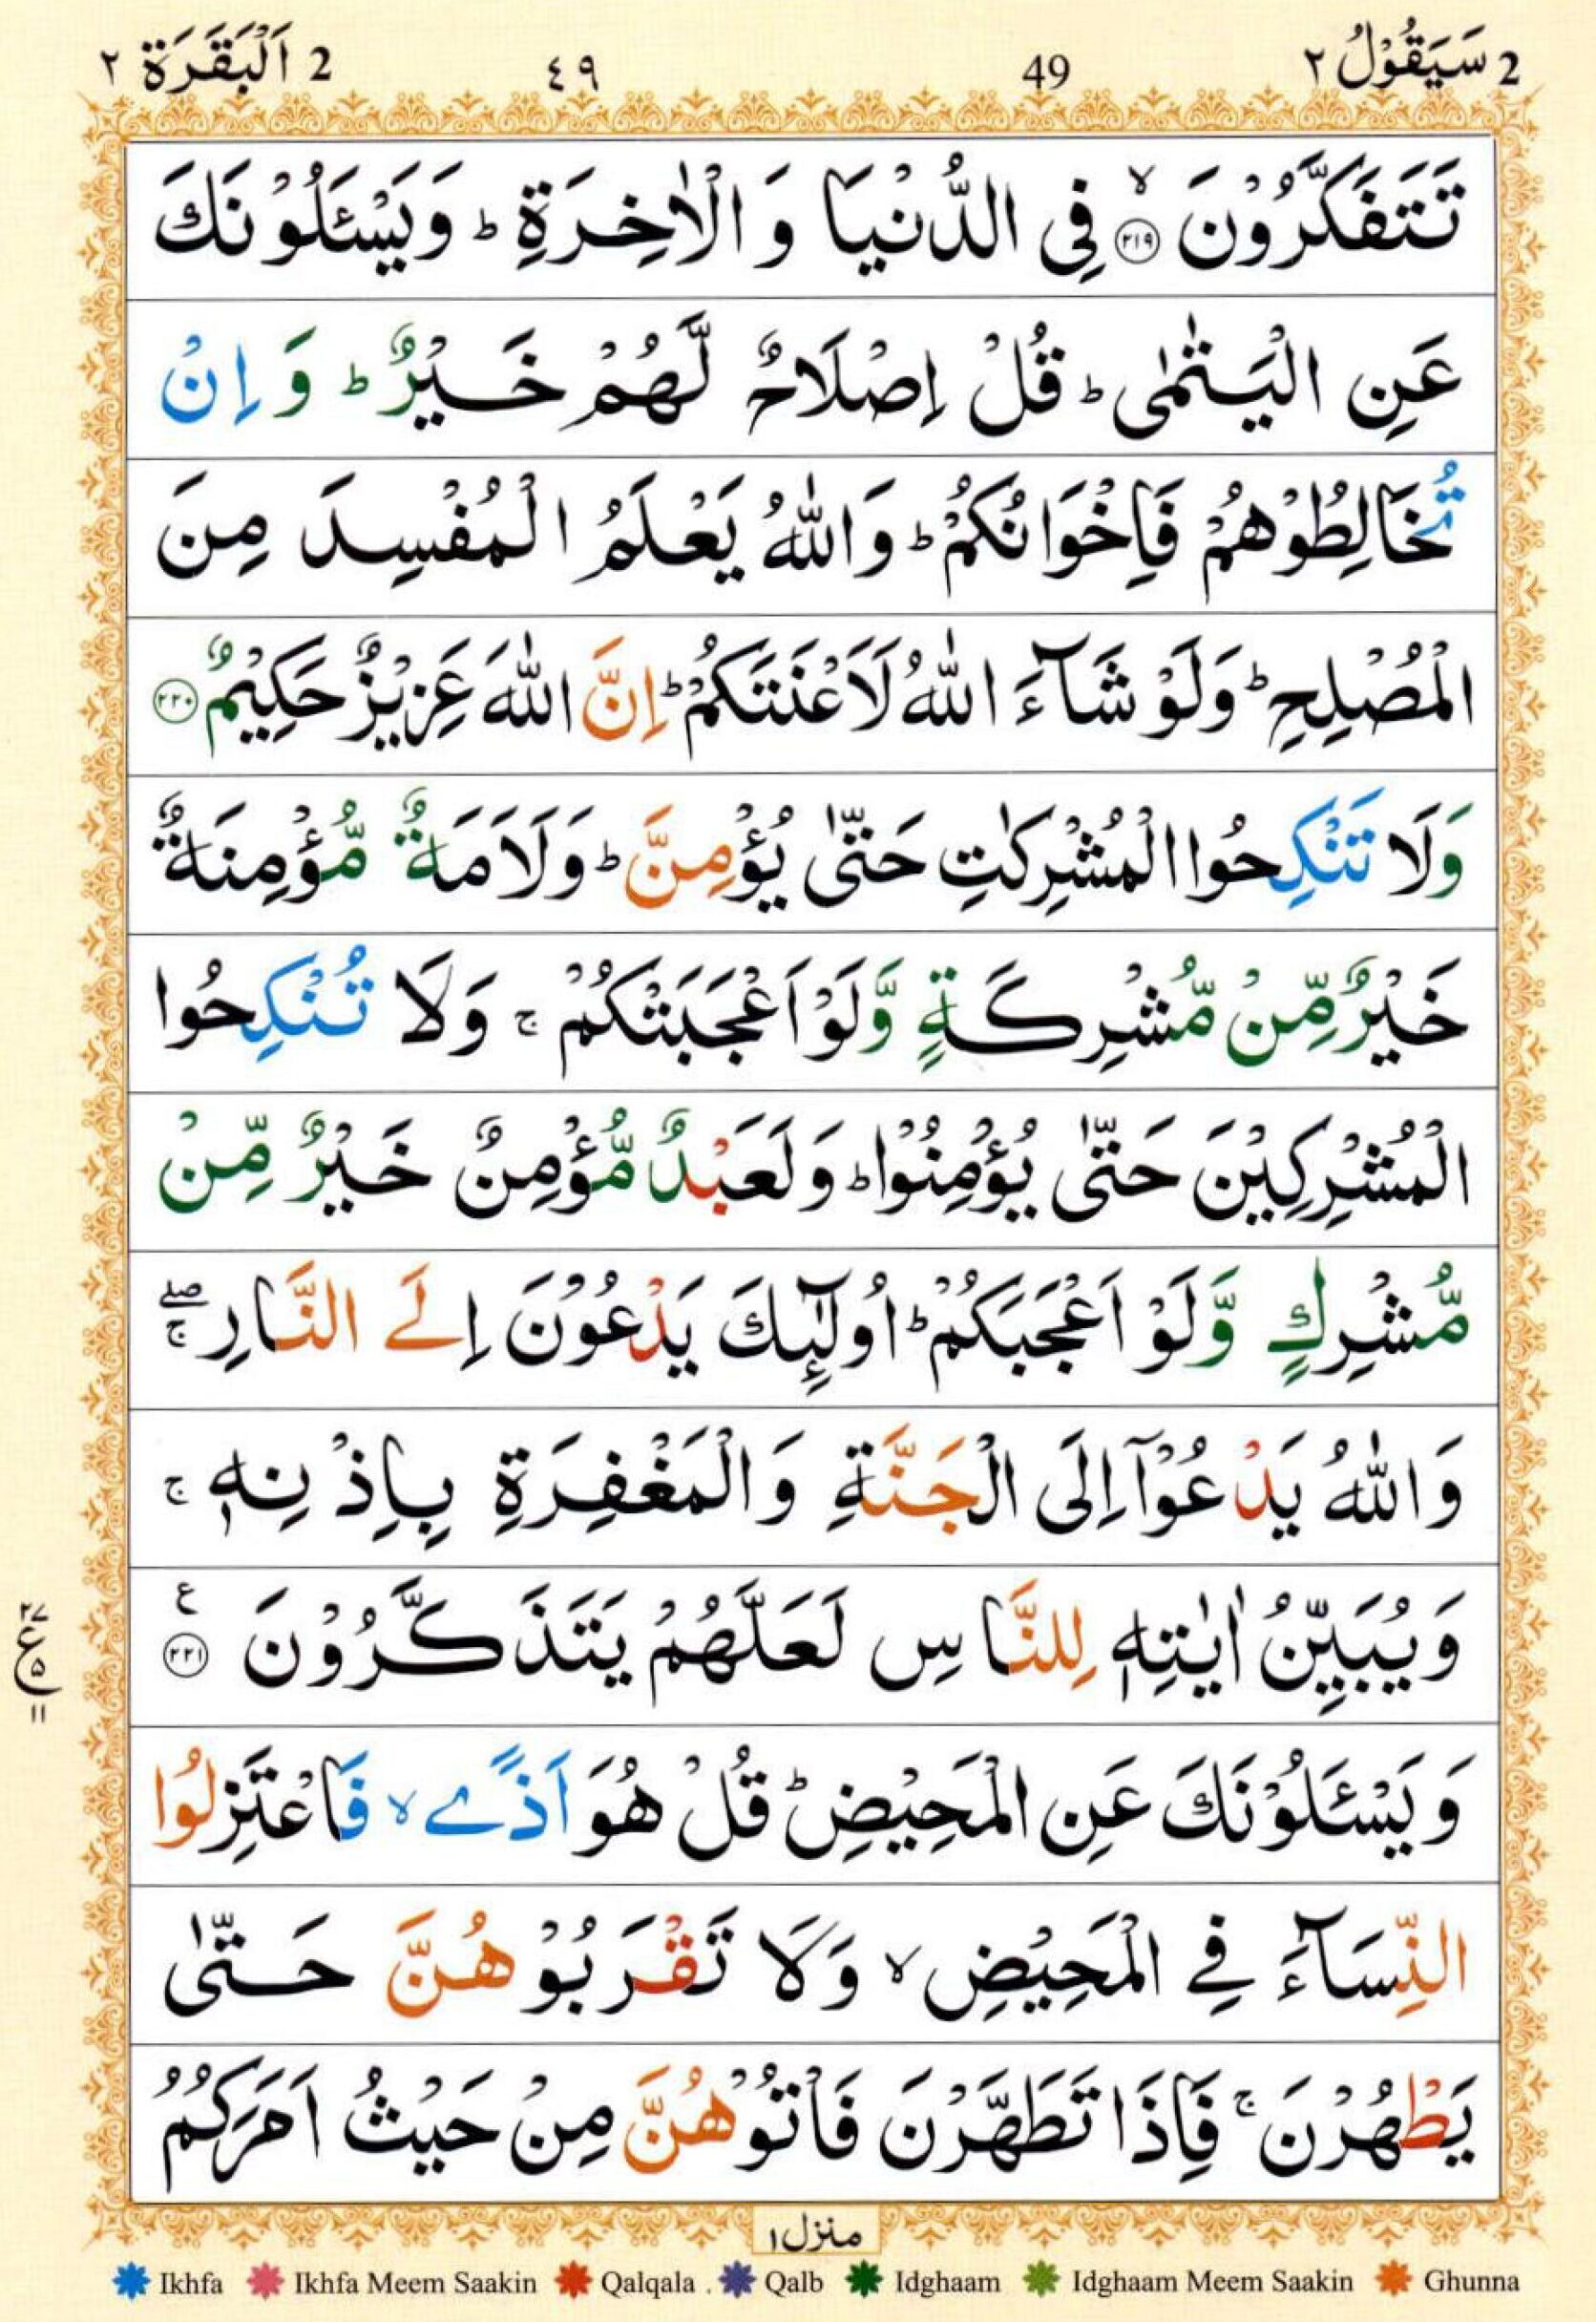 2 سَيَقُوْلُ ٢ 49 ٤٩ 2 اَلْبَقَرَة ٢
تَتَفَكَّرُوْنَ ۙ‏﴿۲۱۹﴾ فِى الدُّنْيَا وَ الْاٰخِرَةِ ؕ وَيَسْـَٔلُوْنَكَ
عَنِ الْيَتٰمٰى ؕ قُلْ اِصْلَاحٌ لَّهُمْ خَيْرٌ ؕ وَ اِنْ
تُخَالِطُوْهُمْ فَاِخْوَانُكُمْ ؕ وَاللّٰهُ يَعْلَمُ الْمُفْسِدَ مِنَ
الْمُصْلِحِ ؕ وَلَوْ شَآءَ اللّٰهُ لَاَعْنَتَكُمْ ؕ اِنَّ اللّٰهَ عَزِيْزٌ حَكِيْمٌ ﴿۲۲۰﴾
وَلَا تَنْكِحُوا الْمُشْرِكٰتِ حَتّٰى يُؤْمِنَّ ؕ وَلَاَمَةٌ مُّؤْمِنَةٌ
خَيْرٌ مِّنْ مُّشْرِكَةٍ وَّلَوْ اَعْجَبَتْكُمْ ۚ وَلَا تُنْكِحُوا
الْمُشْرِكِيْنَ حَتّٰى يُؤْمِنُوْا ؕ وَلَعَبْدٌ مُّؤْمِنٌ خَيْرٌ مِّنْ
مُّشْرِكٍ وَّلَوْ اَعْجَبَكُمْ ؕ اُولٰٓئِكَ يَدْعُوْنَ اِلَى النَّارِ ۖۚ
وَاللّٰهُ يَدْعُوْٓا اِلَى الْجَنَّةِ وَالْمَغْفِرَةِ بِاِذْنِهٖ ۚ
وَيُبَيِّنُ اٰيٰتِهٖ لِلنَّاسِ لَعَلَّهُمْ يَتَذَكَّرُوْنَ ﴿۲۲۱﴾ ع
٢٧ ع ٥ ١١
وَ يَسْـَٔلُوْنَكَ عَنِ الْمَحِيْضِ ؕ قُلْ هُوَ اَذًى ۙ فَاعْتَزِلُوا
النِّسَآءَ فِى الْمَحِيْضِ ۙ وَلَا تَقْرَبُوْهُنَّ حَتّٰى
يَطْهُرْنَ ۚ فَاِذَا تَطَهَّرْنَ فَاْتُوْهُنَّ مِنْ حَيْثُ اَمَرَكُمُ
منزل ۱
Ikhfa Ikhfa Meem Saakin Qalqala . Qalb Idghaam Idghaam Meem Saakin Ghunna